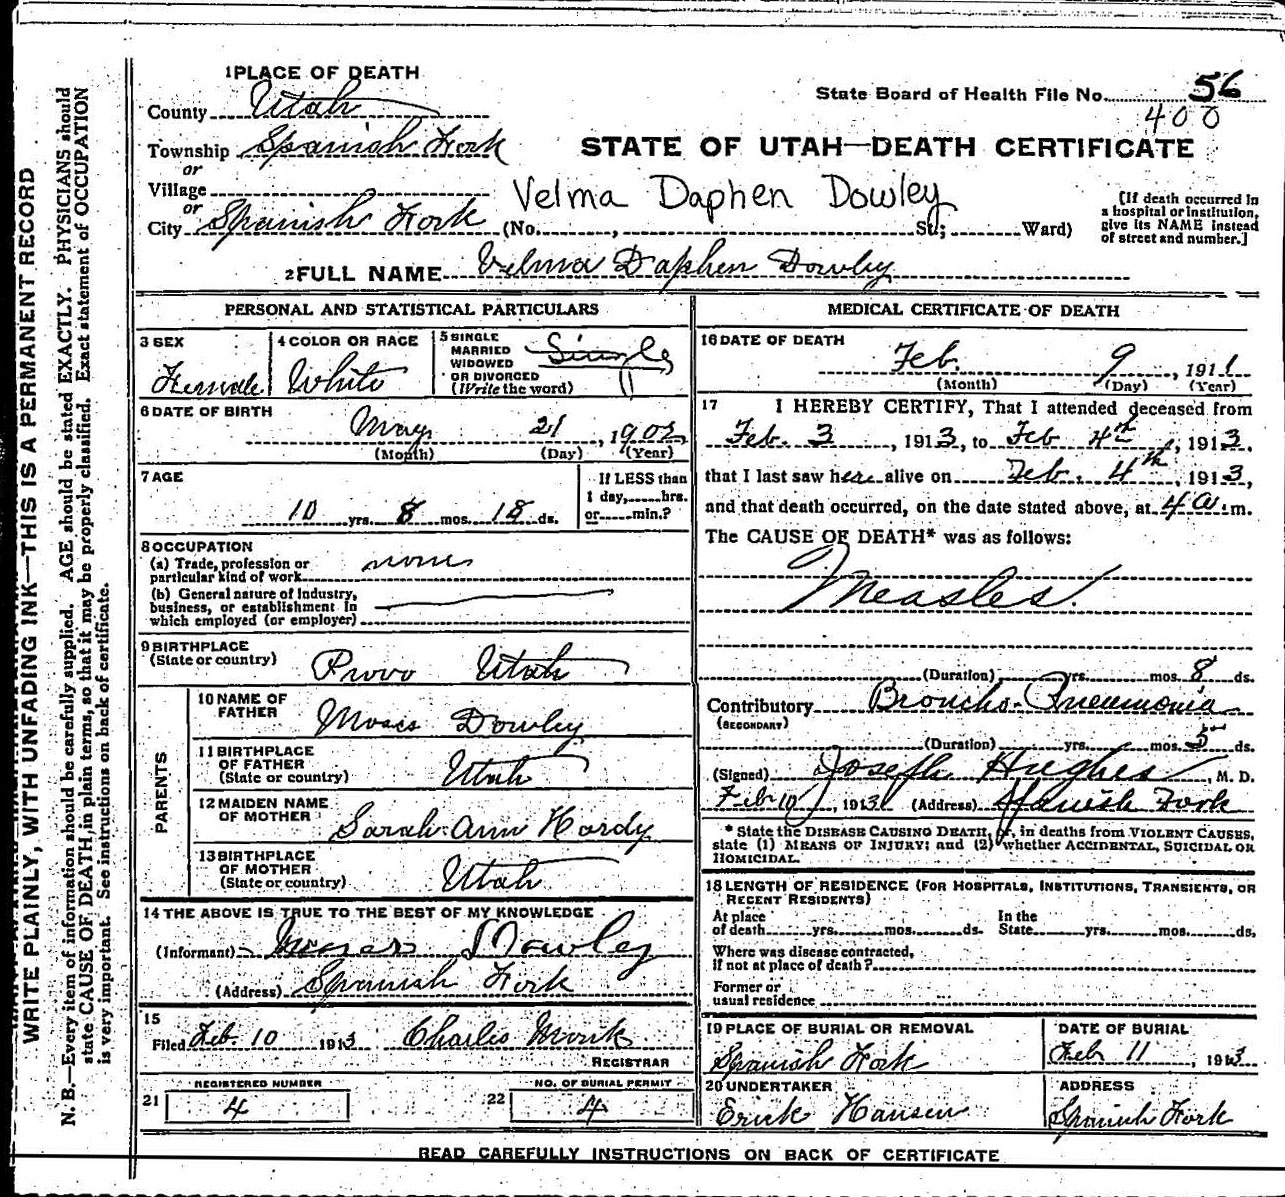 WRITE PLAINLY, WITH UNFADING INK—THIS IS A PERMANENT RECORD
N. B.—Every item of information should be carefully supplied. AGE should be stated EXACTLY. PHYSICIANS should
state CAUSE OF DEATH in plain terms, so that it may be properly classified. Exact statement of OCCUPATION
is very important. See instructions on back of certificate.
1 PLACE OF DEATH
County Utah
State Board of Health File No. 56
400
Township Spanish Fork
STATE OF UTAH—DEATH CERTIFICATE
or
Village
Velma Daphen Dowley
or
City Spanish Fork (No. , St.; Ward)
[If death occurred in
a hospital or institution,
give its NAME instead
of street and number.]
2 FULL NAME Velma Daphen Dowley
PERSONAL AND STATISTICAL PARTICULARS
3 SEX
Female
4 COLOR OR RACE
White
5 SINGLE
MARRIED
WIDOWED
OR DIVORCED
(Write the word)
Single
6 DATE OF BIRTH
May 21, 1902
(Month) (Day) (Year)
7 AGE
10 yrs. 8 mos. 18 ds.
If LESS than
1 day, hrs.
or min.?
8 OCCUPATION
(a) Trade, profession or
particular kind of work none
(b) General nature of industry,
business, or establishment in
which employed (or employer)
9 BIRTHPLACE
(State or country)
Provo Utah
PARENTS
10 NAME OF
FATHER
Moses Dowley
11 BIRTHPLACE
OF FATHER
(State or country)
Utah
12 MAIDEN NAME
OF MOTHER
Sarah Ann Hardy
13 BIRTHPLACE
OF MOTHER
(State or country)
Utah
14 THE ABOVE IS TRUE TO THE BEST OF MY KNOWLEDGE
(Informant) Moses Dowley
(Address) Spanish Fork
15
Filed Feb. 10 1913 Charles Monk
REGISTRAR
REGISTERED NUMBER
21 4
NO. OF BURIAL PERMIT
22 4
MEDICAL CERTIFICATE OF DEATH
16 DATE OF DEATH
Feb. 9, 191
(Month) (Day) (Year)
17 I HEREBY CERTIFY, That I attended deceased from
Feb. 3, 1913, to Feb 4th, 1913,
that I last saw her alive on Feb. 4th, 1913,
and that death occurred, on the date stated above, at 4 a. m.
The CAUSE OF DEATH* was as follows:
Measles.
(Duration) yrs. mos. 8 ds.
Contributory Broncho-Pneumonia
(SECONDARY)
(Duration) yrs. mos. 5 ds.
(Signed) Joseph Hughes, M. D.
Feb 10, 1913 (Address) Spanish Fork
* State the DISEASE CAUSING DEATH, or, in deaths from VIOLENT CAUSES,
state (1) MEANS OF INJURY; and (2) whether ACCIDENTAL, SUICIDAL OR
HOMICIDAL.
18 LENGTH OF RESIDENCE (FOR HOSPITALS, INSTITUTIONS, TRANSIENTS, OR
RECENT RESIDENTS)
At place
of death yrs. mos. ds.
In the
State yrs. mos. ds.
Where was disease contracted,
if not at place of death?
Former or
usual residence
19 PLACE OF BURIAL OR REMOVAL
Spanish Fork
DATE OF BURIAL
Feb 11, 1913
20 UNDERTAKER
Erick Hansen
ADDRESS
Spanish Fork
READ CAREFULLY INSTRUCTIONS ON BACK OF CERTIFICATE